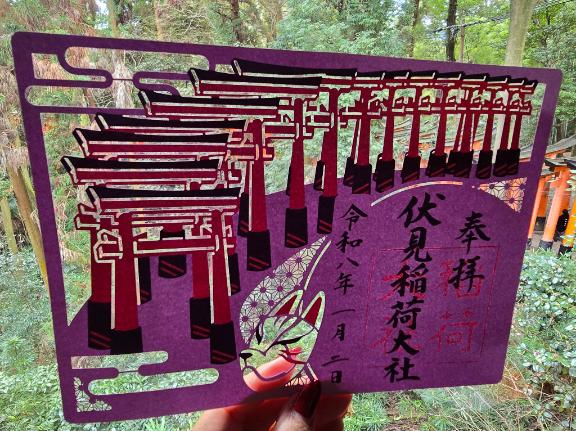 奉拝
伏見稲荷大社
令和八年一月二日